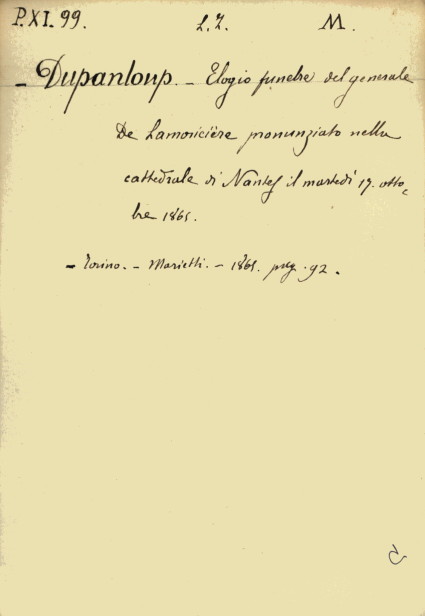 P.XI.99. L.Z. M.
- Dupanloup. - Elogio funebre del generale
De Lamoricière pronunziato nella
cattedrale di Nantes il martedì 17. otto,
bre 1865.
- Torino. - Marietti. - 1865. pag. 92.